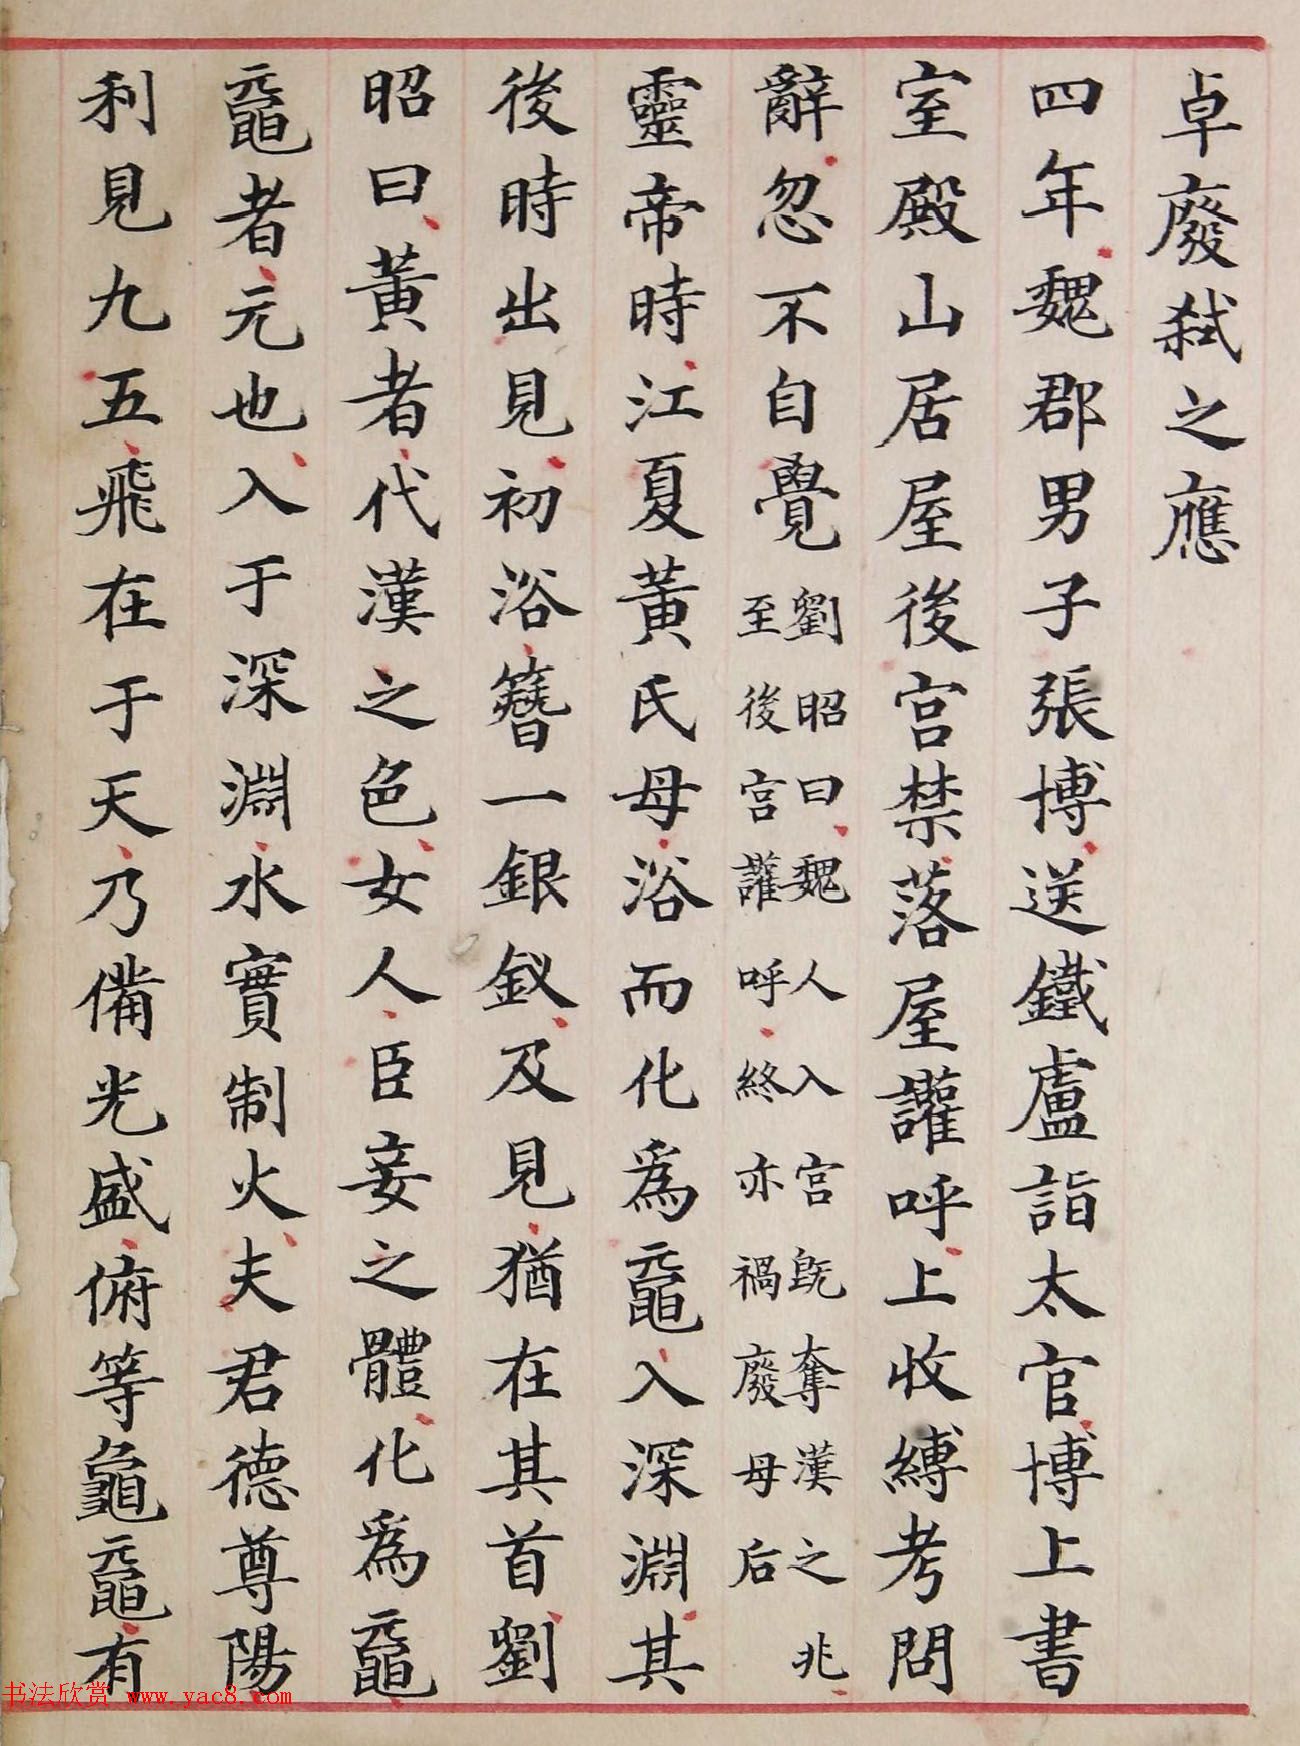 卓廢弒之應
四年魏郡男子張博送鐵盧詣太官博上書
室殿山居屋後宮禁落屋讙呼上收縛考問
辭忽不自覺劉昭曰魏人入宮既奪漢之兆
至後宮讙呼終亦禍廢母后
靈帝時江夏黃氏母浴而化為黿入深淵其
後時出見初浴簪一銀釵及見猶在其首劉
昭曰黃者代漢之色女人臣妾之體化為黿
黿者元也入于深淵水實制火夫君德尊陽
利見九五飛在于天乃備光盛俯等龜黿有
书法欣赏 www.yac8.com